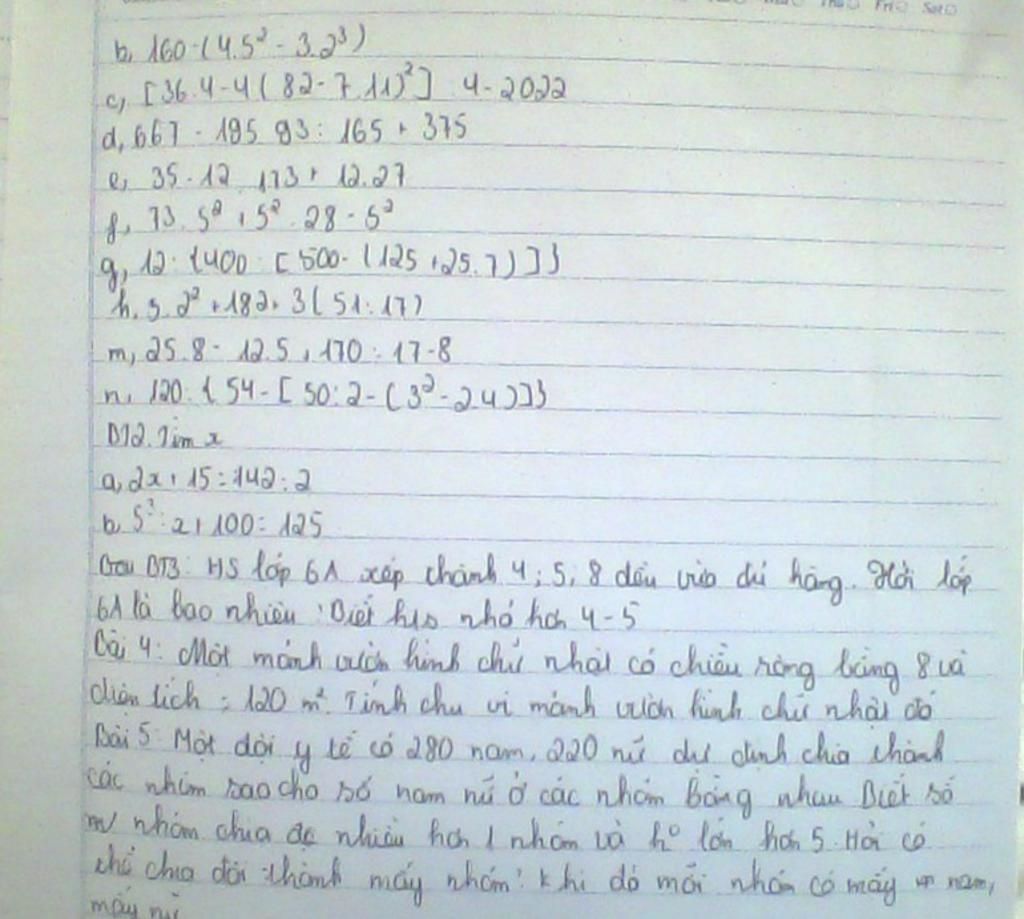 Fri Sat
b, 160 - (4.5² - 3.2³)
c, [36.4 - 4(82 - 7.11)²] 4 - 2022
d, 667 - 195 93 : 165 + 375
e, 35.12 173 + 12.27
f, 73.5² + 5².28 - 5²
g, 12 : {400 : [500 - (125 + 25.7)]}
h, 3.2² + 182 + 3(51:17)
m, 25.8 - 12.5 + 170 : 17 - 8
n, 120 : {54 - [50:2 - (3² - 2.4)]}
BT2. Tìm x
a, 2x + 15 = 142 : 2
b, 100 = 125
BT3: HS lớp 6A xếp thành 4; 5; 8 đều vừa đủ hàng. Hỏi lớp
6A là bao nhiêu Biết nhỏ hơn 4-5
Bài 4: Một mảnh vườn hình chữ nhật có chiều rộng bằng 8 và
diện tích = 120 m². Tính chu vi mảnh vườn hình chữ nhật đó
Bài 5: Một đội y tế có 280 nam, 220 nữ dự định chia thành
các nhóm sao cho số nam nữ ở các nhóm bằng nhau Biết số
nhóm chia đc nhiều hơn 1 nhóm và lớn hơn 5. Hỏi có
thể chia đội thành mấy nhóm? Khi đó mỗi nhóm có mấy nam,
mấy nữ